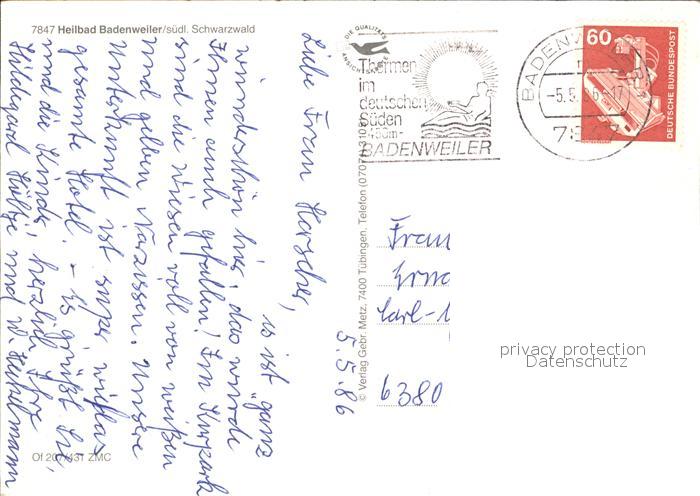 7847 Heilbad Badenweiler/südl. Schwarzwald
DIE QUALITÄTS
ANSICHTSKARTE
Thermen
im
deutschen
Süden
-450m-
BADENWEILER
BADENW
-5.5.86-17
7847
60
DEUTSCHE BUNDESPOST
Liebe Frau
es ist "ganz
wunderschön hier, das würde
Ihnen auch gefallen! Im Kurpark
sind die Wiesen voll von weißen
und gelben Narzissen. Unsere
Unterkunft ist super, wie das
gesamte Hotel. - Es grüßt Sie
und die Kinder, herzlich Ihre
Hildegard und W.
5.5.86
© Verlag Gebr. Metz, 7400 Tübingen, Telefon (0707
Frau
Erna
Carl-
6380
privacy protection
Datenschutz
Of 207/431 ZMC